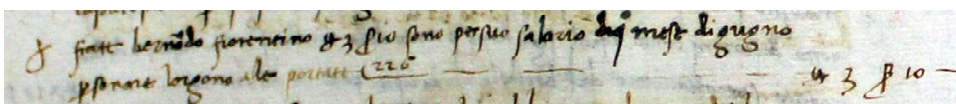 frate bernardo fiorentino 3 10 sono per suo salario del mese di gugno
p sonare lorgono ale portate (226 3 10